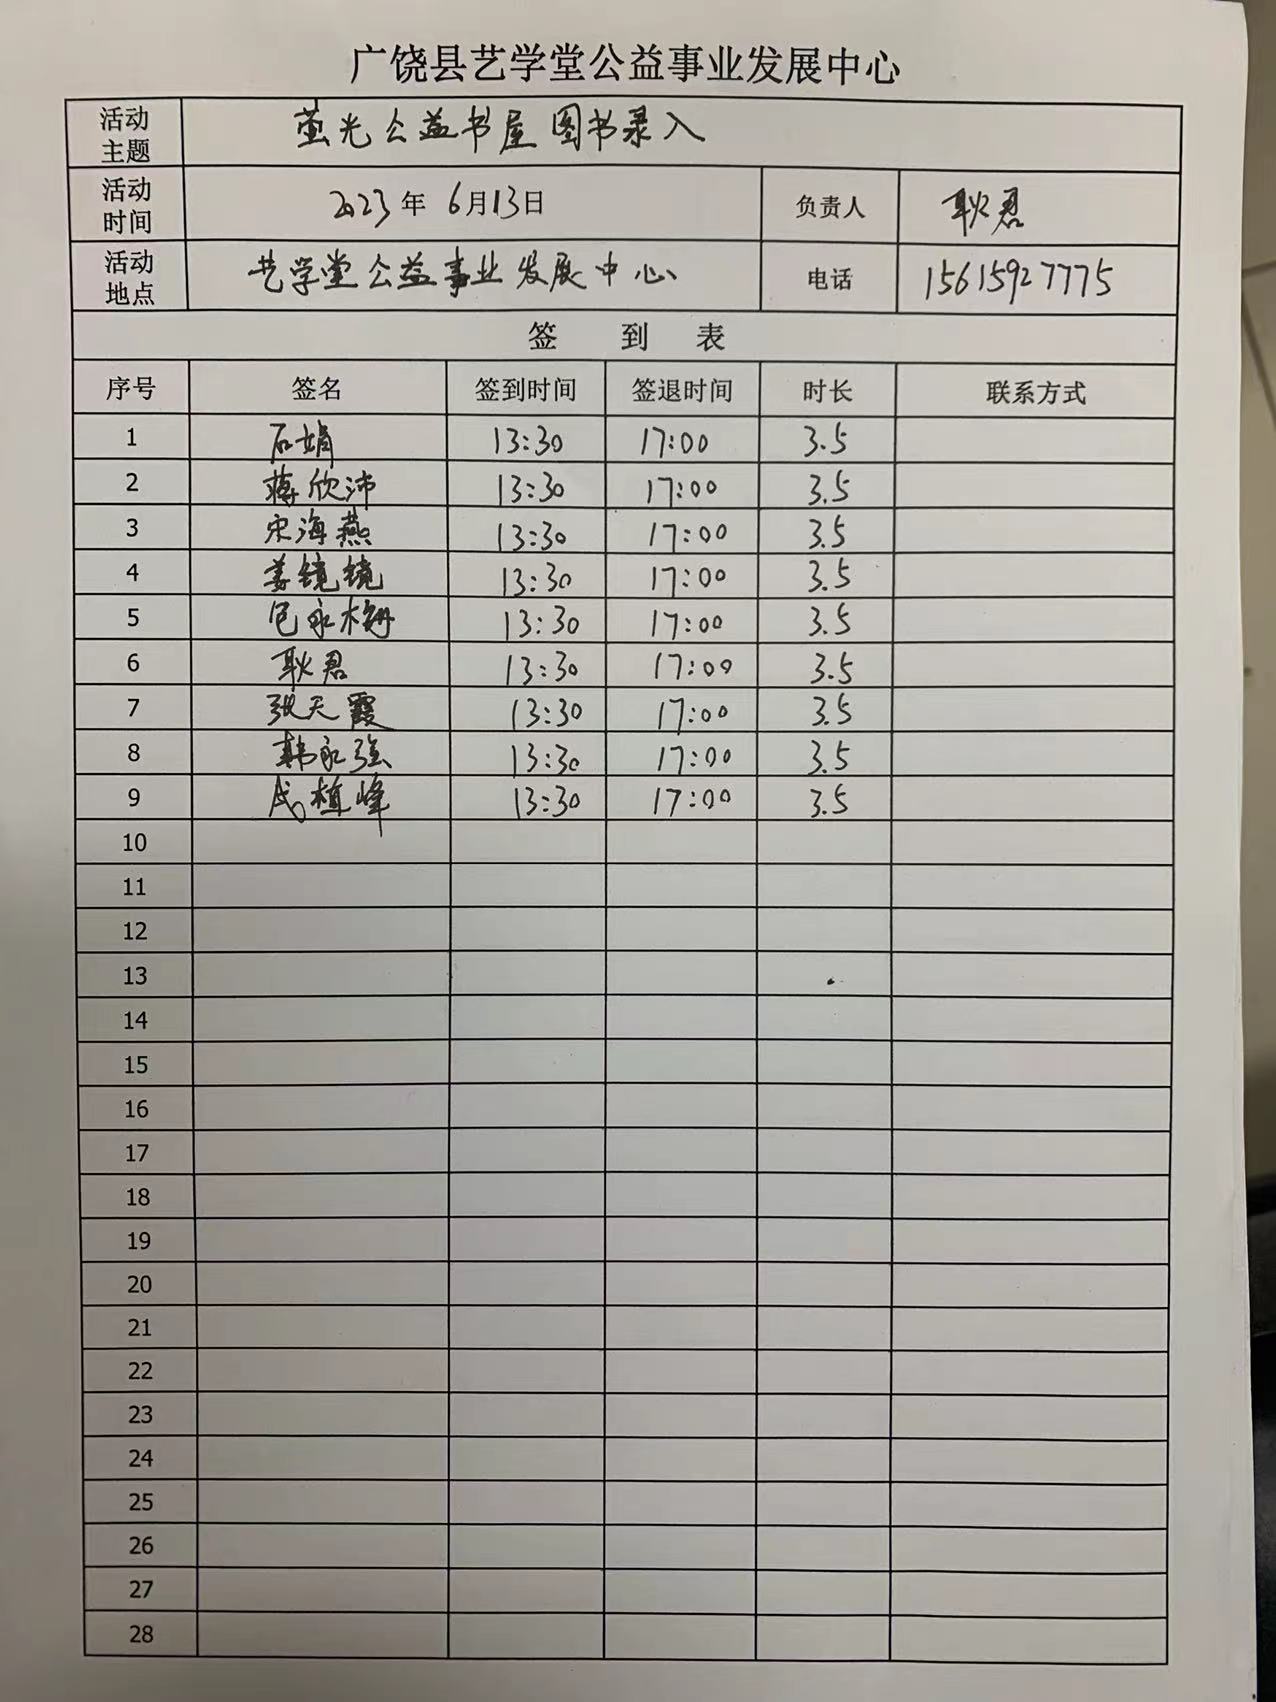 广饶县艺学堂公益事业发展中心
活动主题 萤光公益书屋图书录入
活动时间 2023年 6月13日 负责人 耿君
活动地点 艺学堂公益事业发展中心 电话 15615927775
签 到 表
序号 签名 签到时间 签退时间 时长 联系方式
1 石娟 13:30 17:00 3.5
2 蒋欣沛 13:30 17:00 3.5
3 宋海燕 13:30 17:00 3.5
4 姜镜镜 13:30 17:00 3.5
5 包永梅 13:30 17:00 3.5
6 耿君 13:30 17:00 3.5
7 张天霞 13:30 17:00 3.5
8 韩永强 13:30 17:00 3.5
9 成植峰 13:30 17:00 3.5
10
11
12
13
14
15
16
17
18
19
20
21
22
23
24
25
26
27
28